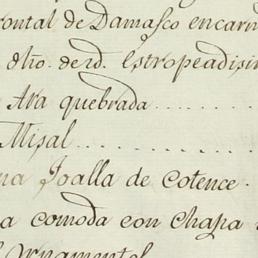 rontal de Damasco encarn
dho. de rd. estropeadisi
Ara quebrada
Misal
na Joalla de Cotence.
a comoda con chapa
l ornamental